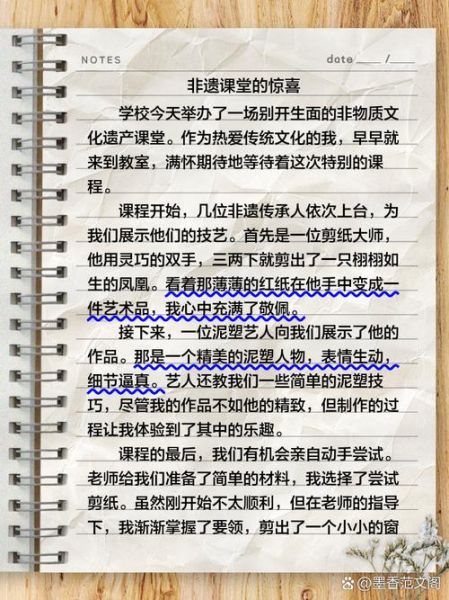 NOTES
date ___ /___
非遗课堂的惊喜
学校今天举办了一场别开生面的非物质文
化遗产课堂。作为热爱传统文化的我，早早就
来到教室，满怀期待地等待着这次特别的课
程。
课程开始，几位非遗传承人依次上台，为
我们展示他们的技艺。首先是一位剪纸大师，
他用灵巧的双手，三两下就剪出了一只栩栩如
生的凤凰。看着那薄薄的红纸在他手中变成一
件艺术品，我心中充满了敬佩。
接下来，一位泥塑艺人向我们展示了他的
作品。那是一个精美的泥塑人物，表情生动，
细节逼真。艺人还教我们一些简单的泥塑技
巧，尽管我的作品不如他的精致，但制作的过
程让我体验到了其中的乐趣。
课程的最后，我们有机会亲自动手尝试。
老师给我们准备了简单的材料，我选择了尝试
剪纸。虽然刚开始不太顺利，但在老师的指导
下，我渐渐掌握了要领，剪出了一个小小的窗
墨香范文阁